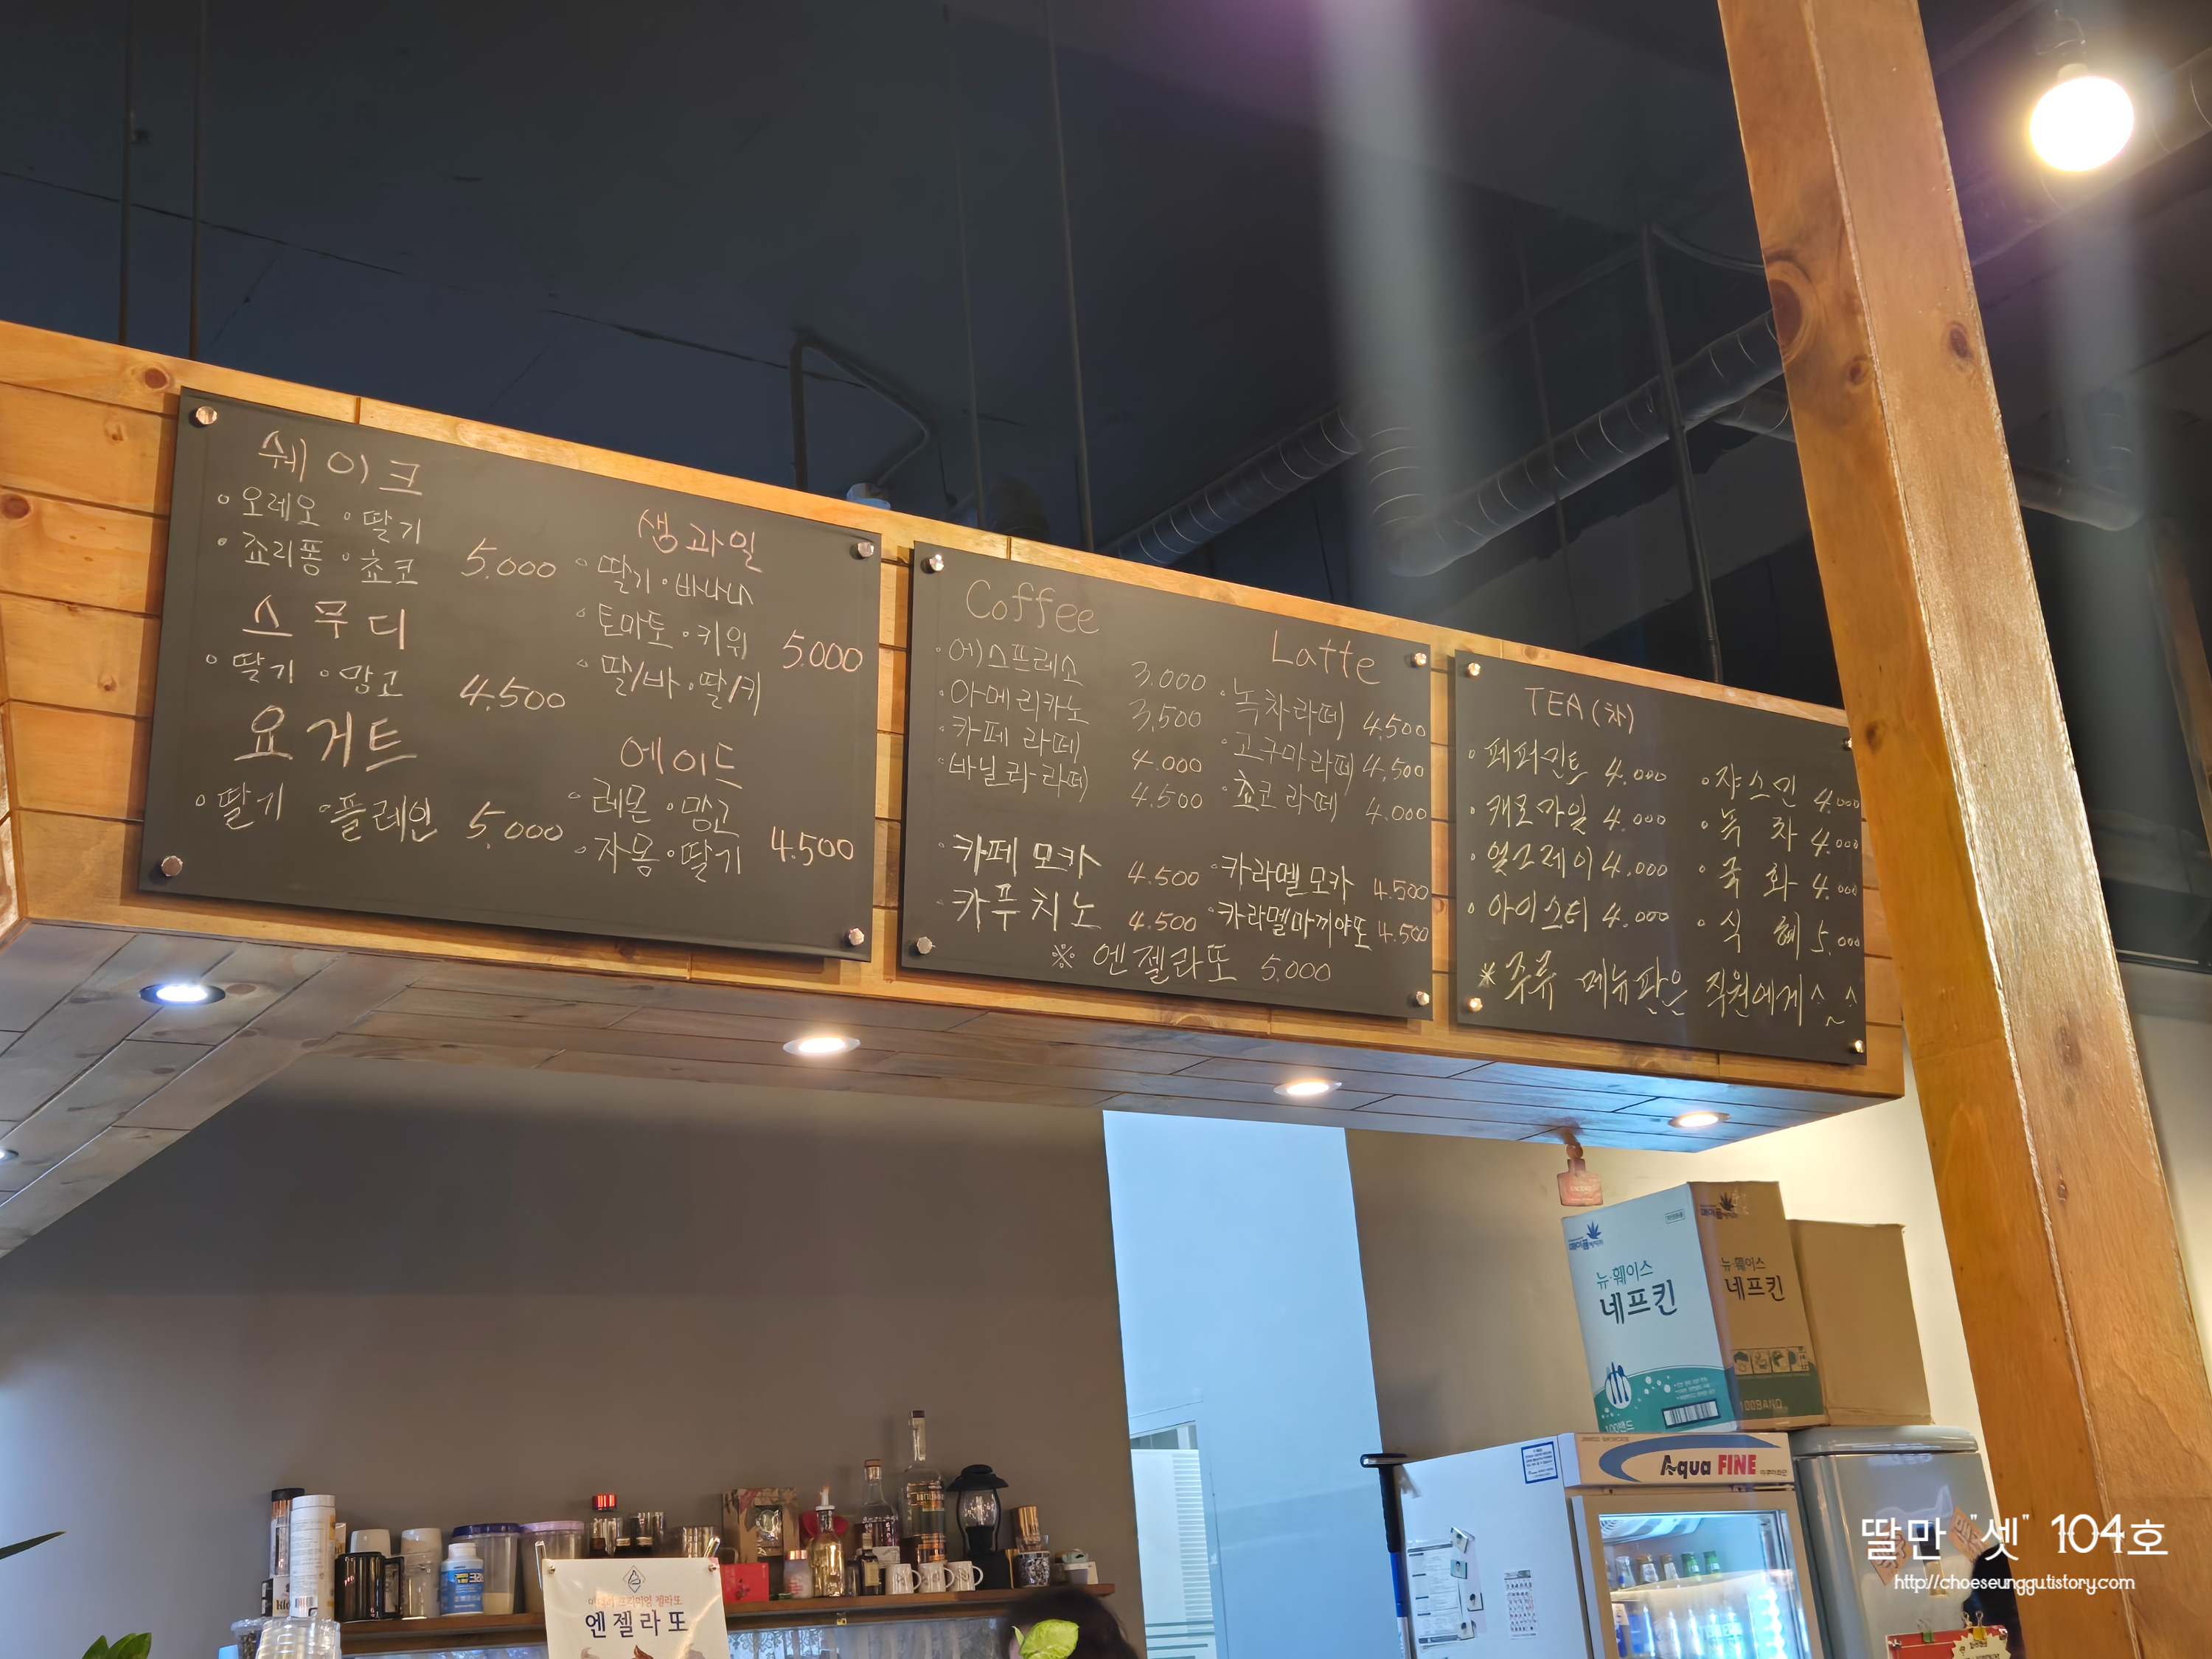 쉐이크
◦오레오 ◦딸기
◦죠리퐁 ◦쵸코 5.000
스무디
◦딸기 ◦망고 4.500
요거트
◦딸기 ◦플레인 5.000
생과일
◦딸기 ◦바나나
◦토마토 ◦키위 5.000
◦딸/바 ◦딸/키
에이드
◦레몬 ◦망고
◦자몽 ◦딸기 4.500
Coffee
◦에스프레소 3.000
◦아메리카노 3,500
◦카페 라떼 4.000
◦바닐라라떼 4.500
◦카페 모카 4.500
◦카푸치노 4.500
Latte
◦녹차라떼 4,500
◦고구마라떼 4,500
◦쵸코라떼 4.000
◦카라멜모카 4.500
◦카라멜마끼야또 4.500
※ 엔젤라또 5.000
TEA(차)
◦페퍼민트 4.000
◦캐모마일 4.000
◦얼그레이 4.000
◦아이스티 4.000
◦쟈스민 4.000
◦녹 차 4.000
◦국 화 4.000
◦식 혜 5.000
※주류 메뉴판은 직원에게^_^
뉴·훼이스
네프킨
뉴·훼이스
네프킨
100BAND
Aqua FINE
엔젤라또
딸만 "셋" 104호
http://choeseunggutistory.com